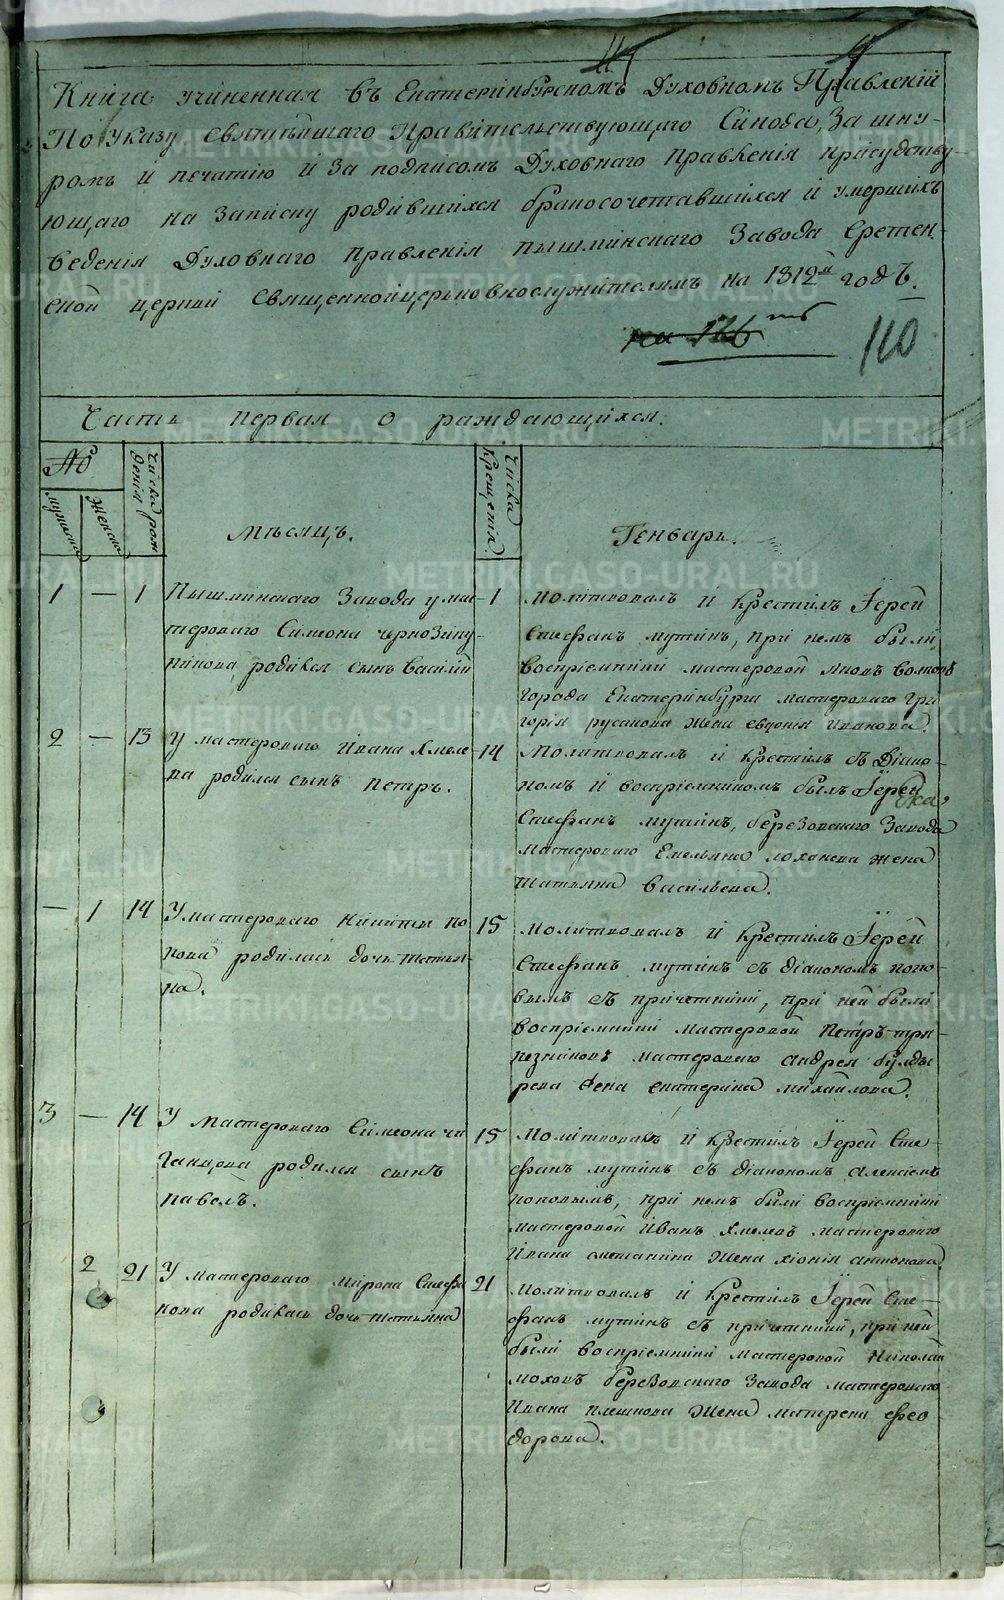 Книга учиненная въ Екатеринбурскомъ Духовномъ Правленiи
По указу святѣйшаго Правительствующаго Синода, За шну-
ромъ и печатiю и За подписомъ Духовнаго правленiя присудству-
ющаго на записку родившихся браносочетавшихся и умершихъ
ведения Духовнаго правления пышминскаго Завода Сретен-
ской церкви священнойцерковнослужителямъ на 1812й годъ.
110
Часть первая о раждающихся.
№
мужска
женска
Числа рож
денiя
Мѣсяцъ.
Числа
Крещенiя
Генварь.
1 — 1 Пышминскаго Завода у мас-
тероваго Симеона чернозипу-
нникова родился сынъ Василiй
1 молитвовалъ и крестилъ Iерей
Стефанъ мутинъ, при немъ были
воспрiемники мастеровой яковъ волковъ
города Екатеринбурга мастероваго Гри
горiя русакова жена евдокiя иванова.
2 — 13 У мастероваго Ивана Хмеле-
ва родился сынъ петръ.
14 Молитвовалъ и крестилъ съ Дiако-
номъ и воспрiемникомъ былъ Iерей
Стефанъ мутинъ, березовскаго Завода
мастероваго Емельяна лоханева жена
татьяна васильева.
— 1 14 У мастероваго Никиты по
пова родилась дочь татья-
на.
15 молитвовалъ и крестилъ Iерей
Стефанъ мутинъ съ дiакономъ попо-
вымъ съ причетники, при ней были
воспрiемники мастеровой петръ тря-
пезниковъ мастероваго андрея булды
рева жена екатерина михайлова.
3 — 14 У мастероваго Симеона чи
ганцова родился сынъ
павелъ.
15 молитвовалъ и крестилъ Iерей Сте-
фанъ мутинъ съ дiакономъ алексiемъ
поповымъ, при немъ были воспрiемники
мастеровой иванъ хмелевъ мастероваго
ивана сметанина жена хiонiя антонова
2 21 У мастероваго мирона Стефа
нова родилась дочь татьяна
21 молитвовалъ и крестилъ Iерей Сте-
фанъ мутинъ съ причетники, при ней
были воспрiемники мастеровой Николай
моховъ березовскаго Завода мастероваго
ивана плешкова жена матрена фео
дорова.
METRIKI.GASO-URAL.RU